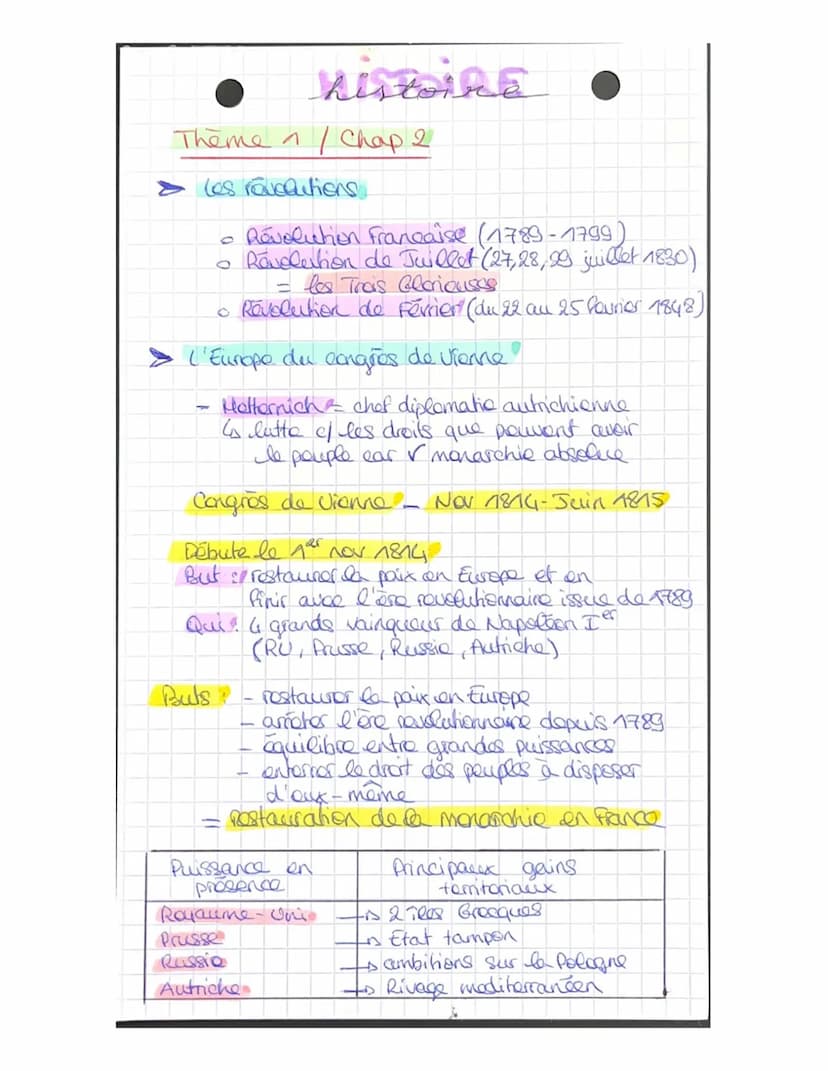 HISTOIRE
histoire
Thème 1 / Chap 2
➤ Les révolutions
○ Révolution Française (1789-1799)
○ Révolution de Juillet (27,28,29 juillet 1830)
= les Trois Glorieuses
○ Révolution de Février (du 22 au 25 février 1848)
➤ L'Europe du congrès de Vienne
- Metternich = chef diplomatie autrichienne
↳ lutte c/ les droits que peuvent avoir
le peuple car V monarchie absolue
Congrès de Vienne - Nov 1814-Juin 1815
Débute le 1er nov 1814
But : restaurer la paix en Europe et en
finir avec l'ère révolutionnaire issue de 1789
Qui : 4 grands vainqueur de Napoléon Ier
(RU, Prusse, Russie, Autriche)
Buts : - restaurer la paix en Europe
- arrêter l'ère révolutionnaire depuis 1789
- équilibre entre grandes puissances
- enterrer le droit des peuples à disposer
d'eux-même
= Restauration de la monarchie en France
Puissance en Principaux gains
présence territoriaux
Royaume-Uni → 2 îles Grecques
Prusse → Etat tampon
Russie → ambitions sur la Pologne
Autriche → Rivage mediterranéen